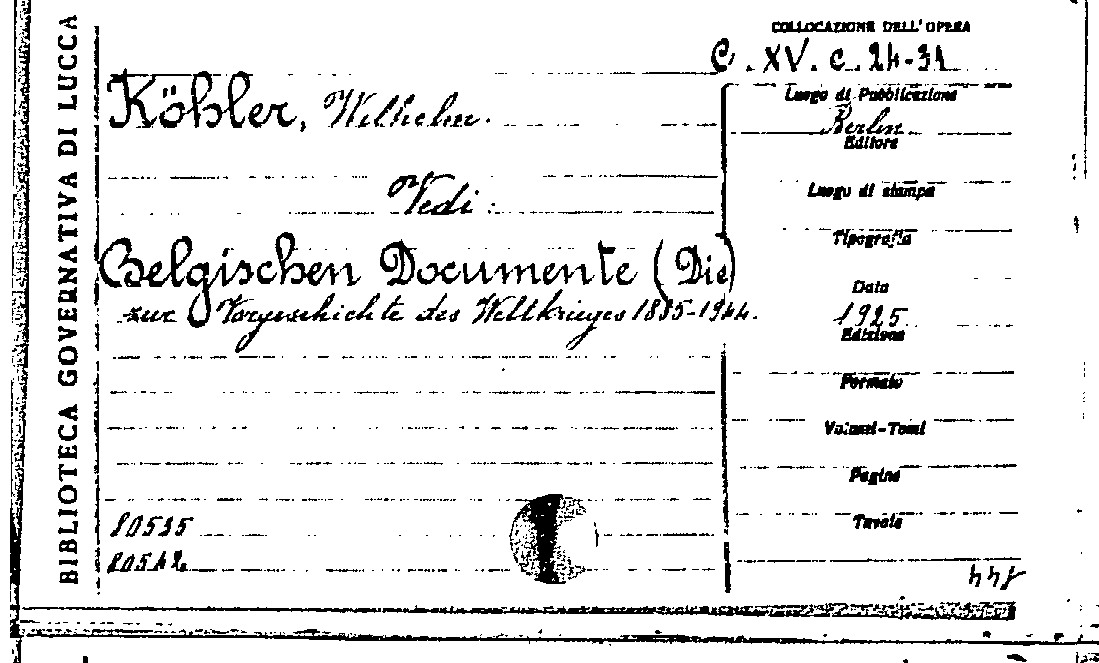 BIBLIOTECA GOVERNATIVA DI LUCCA
COLLOCAZIONE DELL'OPERA
C. XV. c. 24-31
Köhler, Wilhelm.
Luogo di Pubblicazione
Berlin
Editore
Vedi:
Luogo di stampa
Tipografia
Belgischen Documente (Die)
zur Vorgeschichte des Weltkrieges 1885-1914.
Data
1925
Edizione
Formato
Volumi-Tomi
Pagine
Tavole
80535
80542.